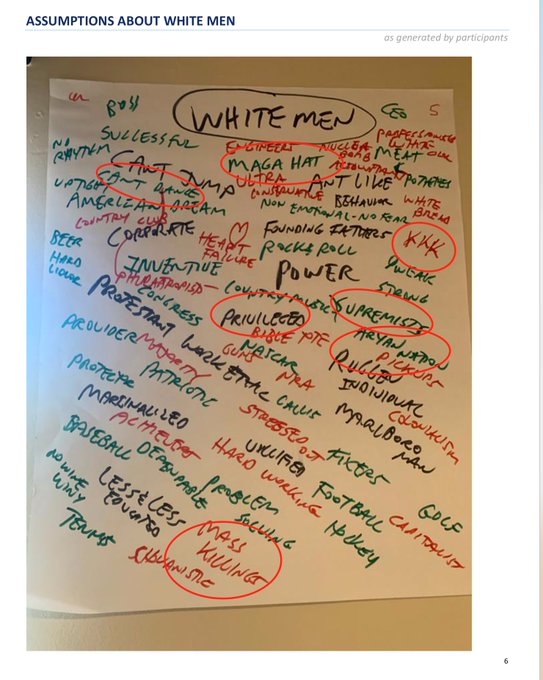 ASSUMPTIONS ABOUT WHITE MEN
as generated by participants
WHITE MEN
CEO
S
SUCCESSFUL
NO RHYTHM
ENGINEERS
NUCLEAR BOMB
PROFESSIONALS
WHITE COLLAR
MEAT & POTATOES
CAN'T JUMP
CAN'T DANCE
MAGA HAT
ACCOUNTANT
UPTIGHT
ULTRA CONSERVATIVE
ANT LIKE BEHAVIOR
WHITE BREAD
AMERICAN DREAM
NON EMOTIONAL-NO FEAR
COUNTRY CLUB
CORPORATE
HEART FAILURE
FOUNDING FATHERS
KKK
BEER
HARD LIQUOR
ROCK & ROLL
INVENTIVE
POWER
WEAK
STRONG
PHILANTROPIST
CONGRESS
COUNTRY MUSIC
SUPREMISTS
PRIVILEGED
ARYAN NATION
PROTESTANT WORK ETHIC
BIBLE TOTE
PROVIDER
MAJORITY
GUNS
NASCAR
NRA
RUGGED INDIVIDUAL
PICKUPS
PROTECTOR
PATRIOTIC
CALLUS
COLONIALISM
MARGINALIZED
STRESSED OUT
MARLBORO MAN
ACHIEVERS
VILLIFIED
FIXERS
BASEBALL
DEPENDABLE
HARD WORKING
NO WINE
WINY
LESS & LESS EDUCATED
PROBLEM SOLVING
FOOTBALL
GOLF
HOCKEY
CAPITALIST
TENNIS
MASS KILLINGS
6